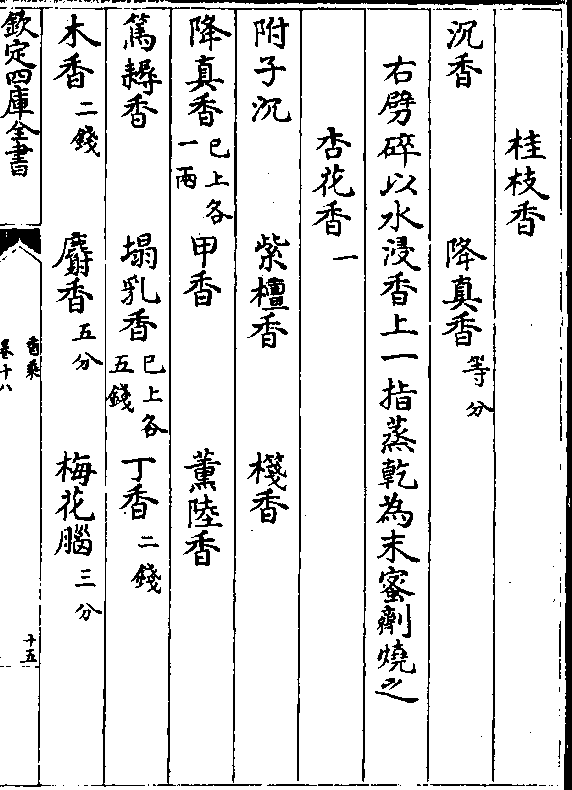 桂枝香
沉香 降真香等分
右劈碎以水浸香上一指蒸乾為末蜜劑燒之
杏花香一
附子沉 紫檀香 棧香
降真香已上各一兩 甲香 薰陸香
篤耨香 塌乳香已上各五錢 丁香二錢
木香二錢 麝香五分 梅花腦三分
欽定四庫全書
香乘
卷十八
十五